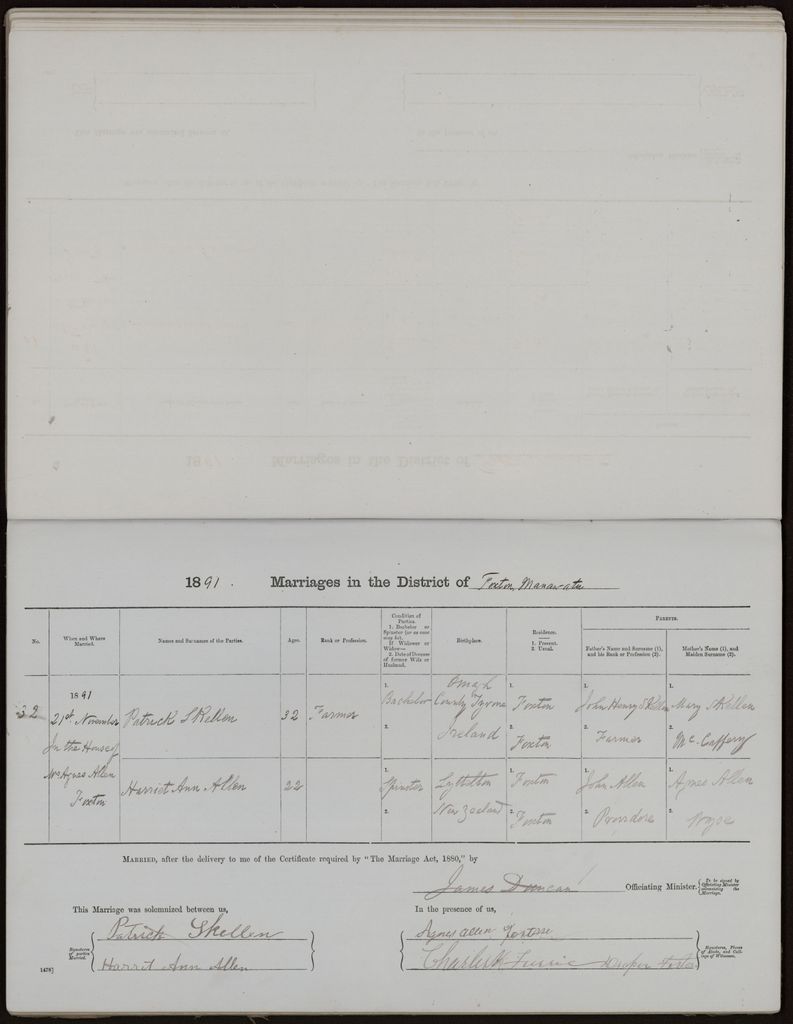 1891. Marriages in the District of Foxton, Manawatu
No.
When and Where Married.
Names and Surnames of the Parties.
Ages.
Rank or Profession.
Condition of Parties.
1. Bachelor or Spinster (or as case may be).
If Widower or Widow—
2. Date of Decease of former Wife or Husband.
Birthplace.
Residence.
1. Present.
2. Usual.
PARENTS.
Father's Name and Surname (1), and his Rank or Profession (2).
Mother's Name (1), and Maiden Surname (2).
32
1891
21st November
In the House of
Mrs Agnes Allen
Foxton
Patrick Skellen
32
Farmer
1.
Bachelor
2.
Omagh
County Tyrone
Ireland
1.
Foxton
2.
Foxton
1.
John Henry Skellen
2.
Farmer
1.
Mary Skellen
2.
McCaffery
Harriet Ann Allen
22
1.
Spinster
2.
Lyttelton
New Zealand
1.
Foxton
2.
Foxton
1.
John Allen
2.
1.
Agnes Allen
2.
MARRIED, after the delivery to me of the Certificate required by "The Marriage Act, 1880," by
James Duncan Officiating Minister. {To be signed by Officiating Minister solemnizing the Marriage.
This Marriage was solemnized between us,
Signatures of parties Married.
Patrick Skellen
Harrit Ann Allen
In the presence of us,
Agnes Allen
Charles
Signatures, Places of Abode, and Callings of Witnesses.
1478]